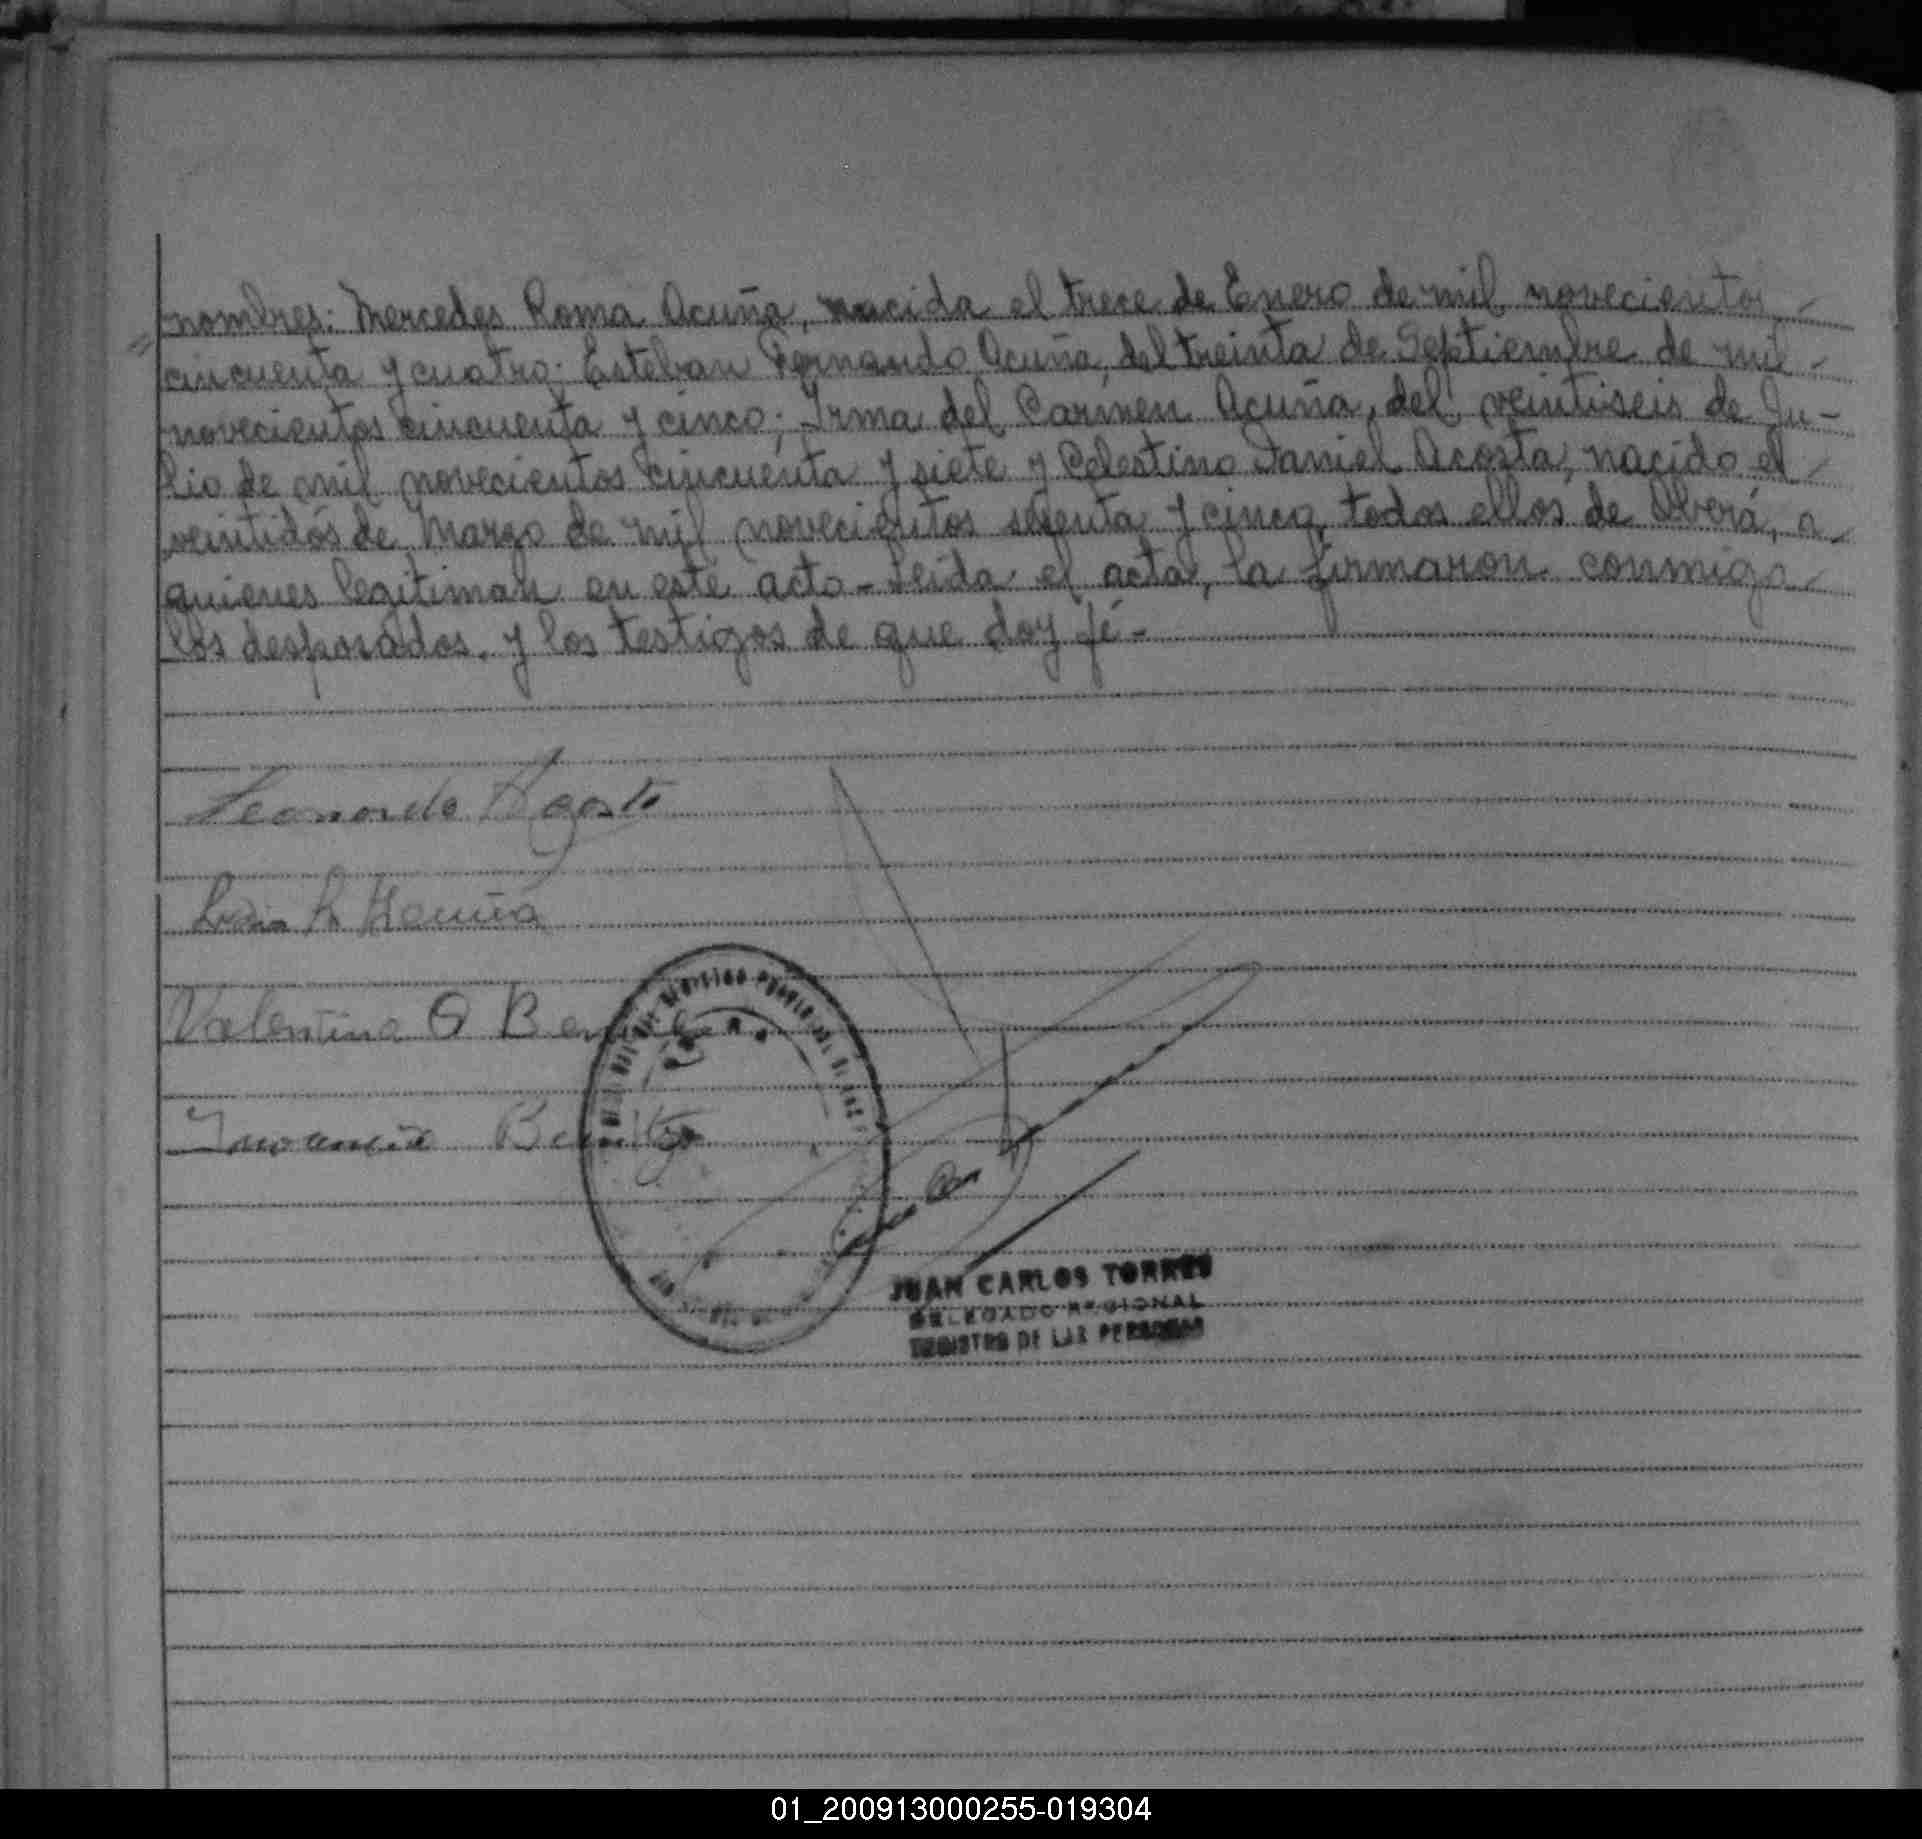 nombres: Mercedes Roma Acuña, nacida el trece de Enero de mil novecientos
cincuenta y cuatro; Esteban Fernando Acuña, del treinta de Septiembre de mil
novecientos cincuenta y cinco; Irma del Carmen Acuña, del veintiseis de Ju-
lio de mil novecientos cincuenta y siete y Celestino Daniel Acosta, nacido el
veintidós de Marzo de mil novecientos y cinco, todos ellos de Oberá, a
quienes legitiman en este acto - Leida el acta, la firmaron conmigo
los desposados, y los testigos de que doy fé -
Leonardo Acosta
Acuña
Valentina
Benitez
JUAN CARLOS TORRES
DELEGADO REGIONAL
REGISTRO DE LAS PERSONAS
01_200913000255-019304